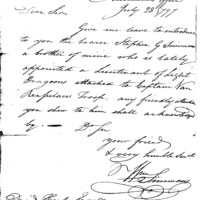 July 28 1797
Dear Sir
Give me leave to introduce
to you the bearer Stephen G Simmons
a brother of mine who is lately
appointed a Lieutenant of Light
Dragoons attached to Captain Van
Renselaers Troop, any friendly attention
you shew to him shall acknowledge
by. D Sir
your friend
& very humble Servt
Wm Simmons